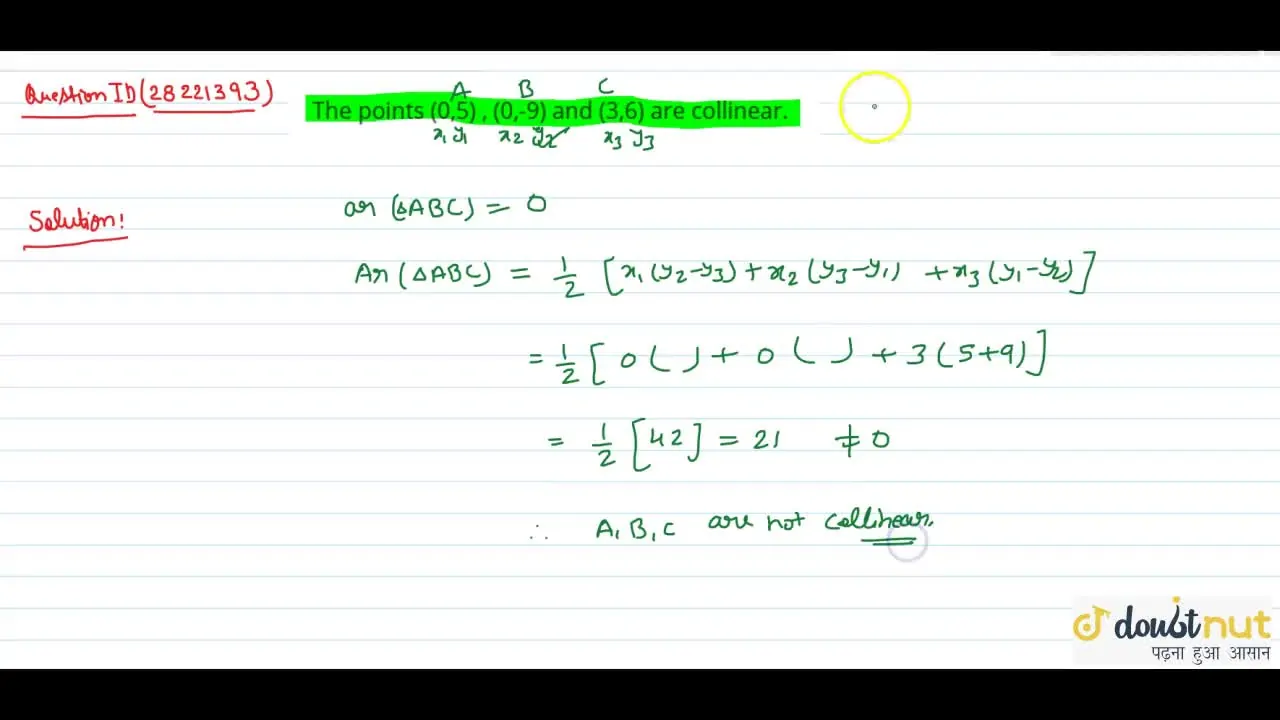 Question ID (28221393)
A B C
The points (0,5) , (0,-9) and (3,6) are collinear.
x₁ y₁ x₂ y₂ x₃ y₃
Solution:
ar (△ABC) = 0
Ar (△ABC) = 1/2 [x₁(y₂-y₃) + x₂(y₃-y₁) + x₃(y₁-y₂)]
= 1/2 [0( ) + 0( ) + 3(5+9)]
= 1/2 [42] = 21 ≠ 0
∴ A, B, C are not collinear.
doubtnut
पढ़ना हुआ आसान